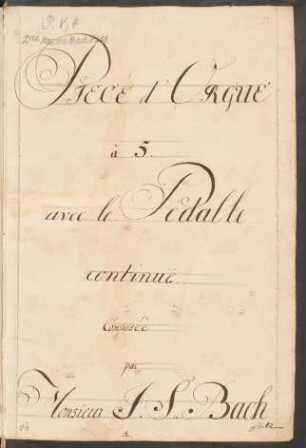 P. 4,
PIECE d'ORGUE
à 5.
avec le Pedalle
continuë
Composée
par
Monsieur J. S. Bach